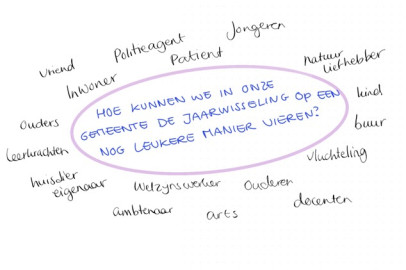 Jongeren
Politieagent
Patient
natuur
liefhebber
vriend
Inwoner
HOE KUNNEN WE IN ONZE
GEMEENTE DE JAARWISSELING OP EEN
NOG LEUKERE MANIER VIEREN?
kind
ouders
buur
leerkrachten
vluchteling
huisdier
eigenaar
Welzynswerker
ouderen
docenten
ambtenaar
arts